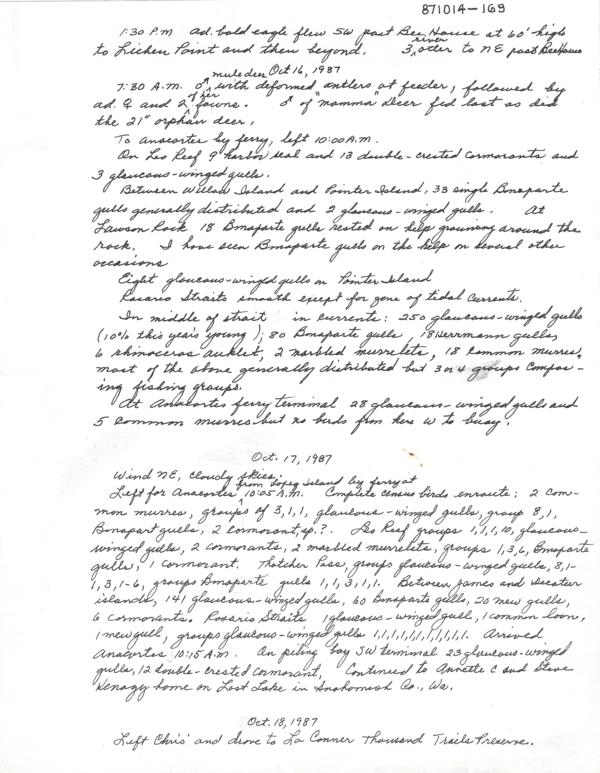 871014-169
1:30 P.M ad. bald eagle flew SW past Bee House at 60' high
to Lichen Point and then beyond. 3 river otter to NE past Bee House
Oct 16, 1987
7:30 A.M. mule deer ♂ with deformed antlers at feeder, followed by
ad. ♀ and 2 of her fawns. ♂ of "momma" deer fed last as did
the 21" orphan deer.
To Anacortes by ferry, left 10:00 A.M.
On Leo Reef 9 harbor seal and 13 double-crested cormorants and
3 glaucous-winged gulls.
Between Willow Island and Pointer Island, 33 single Bonaparte
gulls generally distributed and 2 glaucous-winged gulls. At
Lawson Rock 18 Bonaparte gulls rested on kelp growing around the
rock. I have seen Bonaparte gulls on the kelp on several other
occasions
Eight glaucous-winged gulls on Pointer Island
Rosario Straits smooth except for zone of tidal currents.
In middle of strait in currents: 250 glaucous-winged gulls
(10% this year's young); 80 Bonaparte gulls 18 Herrmann gulls,
6 rhinoceros auklet, 2 marbled murrelets, 18 common murres,
most of the above generally distributed but 3 or 4 groups compos-
ing fishing groups.
At Anacortes ferry terminal 28 glaucous-winged gulls and
5 common murres but no birds from here W to buoy.
Oct. 17, 1987
Wind NE, cloudy skies.
Left for Anacortes from Lopez Island by ferry at 10:05 A.M. Complete census birds enroute: 2 com-
mon murres, groups of 3,1,1, glaucous-winged gulls, group 8,1,
Bonapart gulls, 2 cormorant, sp.?. Leo Reef groups 1,1,1,10, glaucous-
winged gulls, 2 cormorants, 2 marbled murrelets, groups 1,3,6, Bonaparte
gulls, 1 cormorant. Thatcher Pass, groups glaucous-winged gulls, 8,1-
1,3,1-6, groups Bonaparte gulls 1,1,3,1,1. Between James and Decatur
islands, 141 glaucous-winged gulls, 60 Bonaparte gulls, 20 mew gulls,
6 cormorants. Rosario Straits 1 glaucous-winged gull, 1 common loon,
1 mew gull, groups glaucous-winged gulls 1,1,1,1,1,1,1,1,1,1. Arrived
Anacortes 10:15 A.M. On piling bay SW terminal 23 glaucous-winged
gulls, 12 double-crested cormorant, Continued to Annette C and Steve
Kenagy home on Lost Lake in Snohomosh Co., Wa.
Oct. 18, 1987
Left Chris' and drove to La Conner Thousand Trails Preserve.